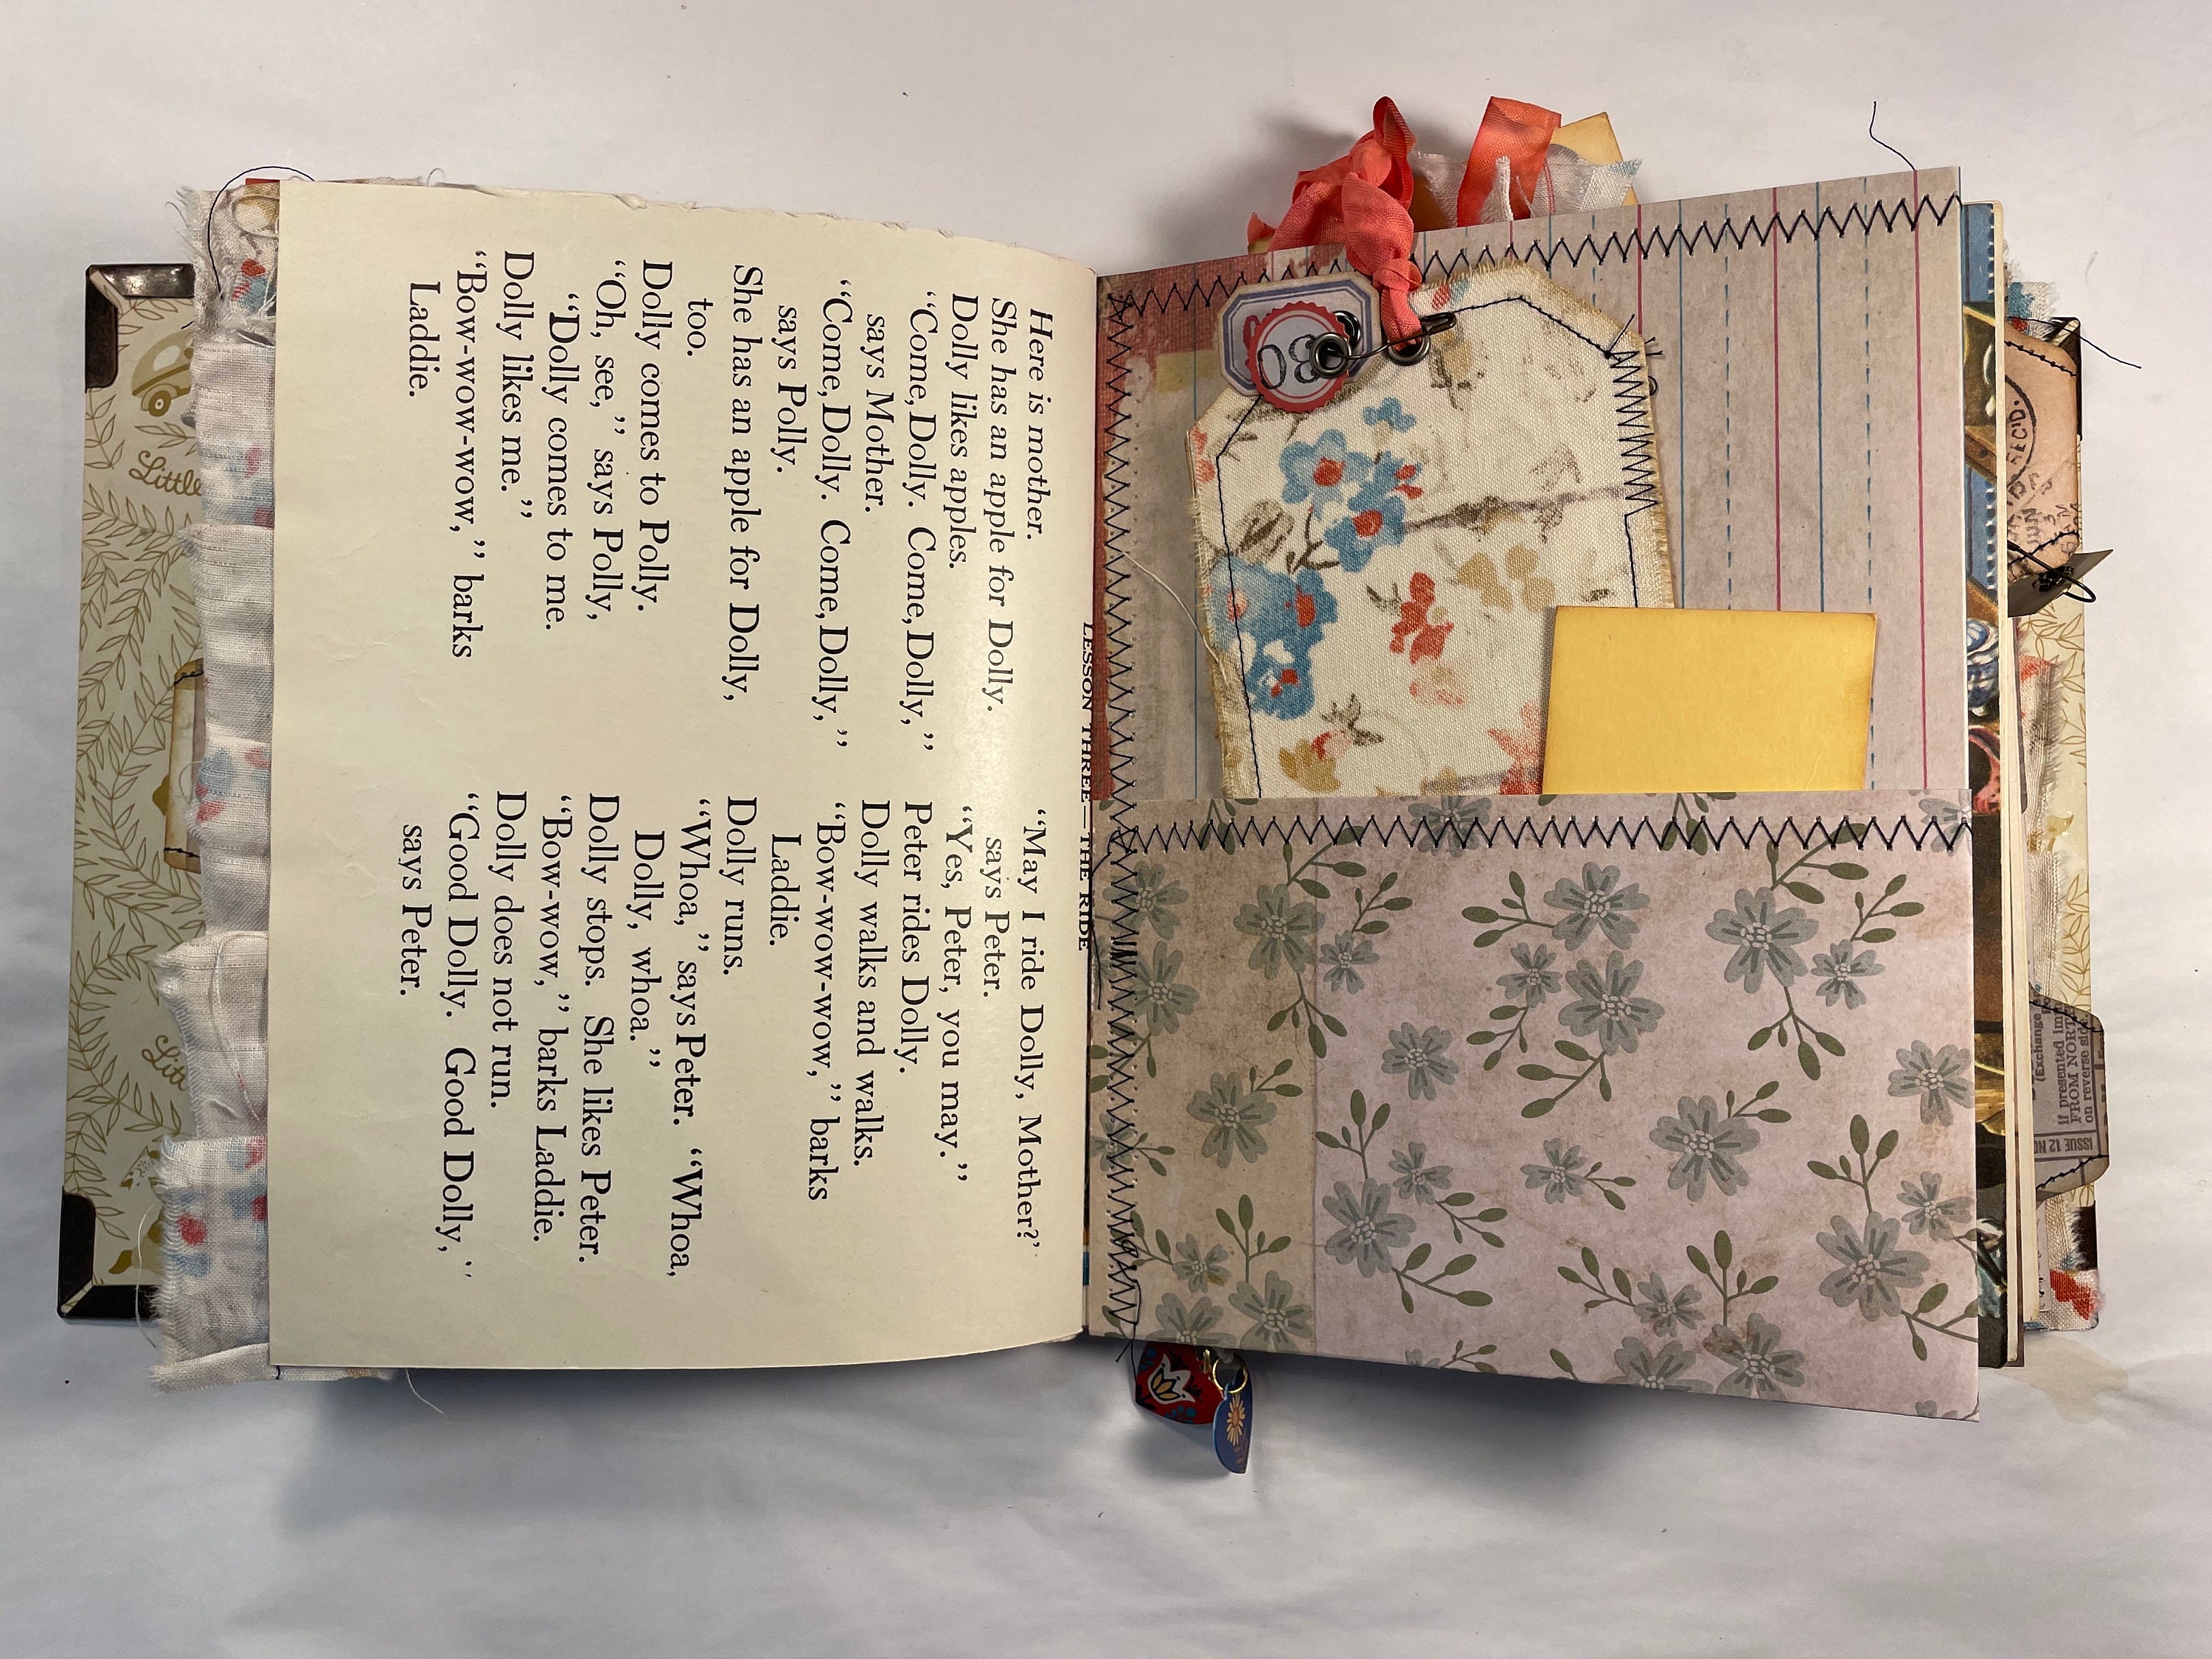 LESSON THREE—THE RIDE
Here is mother.
She has an apple for Dolly.
Dolly likes apples.
“Come, Dolly. Come, Dolly,”
says Mother.
“Come, Dolly. Come, Dolly,”
says Polly.
She has an apple for Dolly,
too.
Dolly comes to Polly.
“Oh, see,” says Polly,
“Dolly comes to me.
Dolly likes me.”
“Bow-wow-wow,” barks
Laddie.
“May I ride Dolly, Mother?”
says Peter.
“Yes, Peter, you may.”
Peter rides Dolly.
Dolly walks and walks.
“Bow-wow-wow,” barks
Laddie.
Dolly runs.
“Whoa,” says Peter. “Whoa,
Dolly, whoa.”
Dolly stops. She likes Peter.
“Bow-wow,” barks Laddie.
Dolly does not run.
“Good Dolly. Good Dolly,”
says Peter.
Little
REC'D.
JUN 3
(Exchange
if presented im
on reverse sid
ISSUE 12 NO